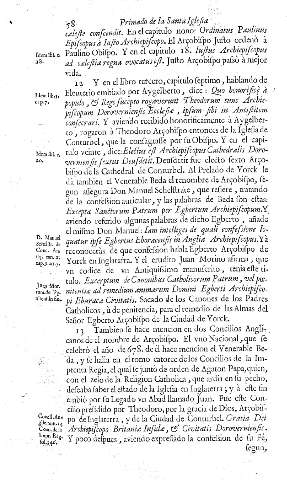 58 Primado de la Santa Iglesia
caleste conscendit. En el capitulo nono: Ordinatus Paulinus
Episcopus à Iusto Archiepiscopo. El Arçobispo Justo ordenò à
Paulino Obispo. Y en el capitulo 18. Iustus Archiepiscopus
ad cælestia regna evocatus est. Justo Arçobispo passò à mejor
vida.
12 Y en el libro tercero, capitulo septimo, hablando de
Eleuterio embiado por Aygelberto, dice: Quo honorificè à
populo, & Rege suscepto rogaverunt Theodorum tunc Archie-
piscopum Dorovernensis Ecclesiæ, ipsum sibi in Antistitem
consecrari. Y aviendo recibido honorificamente à Aygelber-
to, rogaron à Theodoro Arçobispo entonces de la Iglesia de
Conturbel, que la consagrasse por su Obispo. Y en el capi-
tulo veinte, dice: Electus est Archiepiscopus Cathedralis Doro-
vernensis sextus Deusdedit. Deusdedit fue electo sexto Arço-
bispo de la Cathedral de Conturbel. Al Prelado de Yorck le
dà tambien el Venerable Beda el renombre de Arçobispo, se-
gun assegura Don Manuel Schelstrate, que refiere, tratando
de la confession auricular, y las palabras de Beda son estas:
Excepta Sanctorum Patrum per Egbertum Archiepiscopum. Y
aviendo referido algunas palabras de dicho Egberto, añade
el mismo Don Manuel: Iam intelliges de quali confessione lo-
quatur ipse Egbertus Eboracensis in Anglia Archiepiscopus. Yà
reconoceràs de que confession habla Egberto Arçobispo de
Yorck en Inglaterra. Y el erudito Juan Morino afirma, que
un codice de un Antiquissimo manuscrito, tenia este ti-
tulo. Exceptione de Canonibus Catholicorum Patrum, vel pœ-
nitentiæ ad remedium animarum Domini Egberti Archiepisco-
pi Eburaca Civitatis. Sacado de los Canones de los Padres
Catholicos, à de penitencia, para el remedio de las Almas del
Señor Egberto Arçobispo de la Ciudad de Yorck.
13 Tambien se hace mention en dos Concilios Angli-
canos de el nombre de Arçobispo. El uno Nacional, que se
celebrò el año de 678. de el hace mencion el Venerable Be-
da, y se halla en el tomo catorce de los Concilios de la Im-
prenta Regia, el qual se juntò de orden de Agaton Papa, quien,
con el zelo de la Religion Catholica, que ardia en su pecho,
deseaba saber el estado de la Iglesia en Inglaterra, y à este fin
embiò por su Legado un Abad llamado Juan. Fue este Con-
cilio presidido por Theodoro, por la gracia de Dios, Arçobis-
po de Inglaterra, y de la Ciudad de Conturbel. Gratia Dei
Archiepiscopo Britaniæ Insulæ, & Civitatis Dorovernensis.
Y poco despues, aviendo expressado la confession de su Fè,
segun,